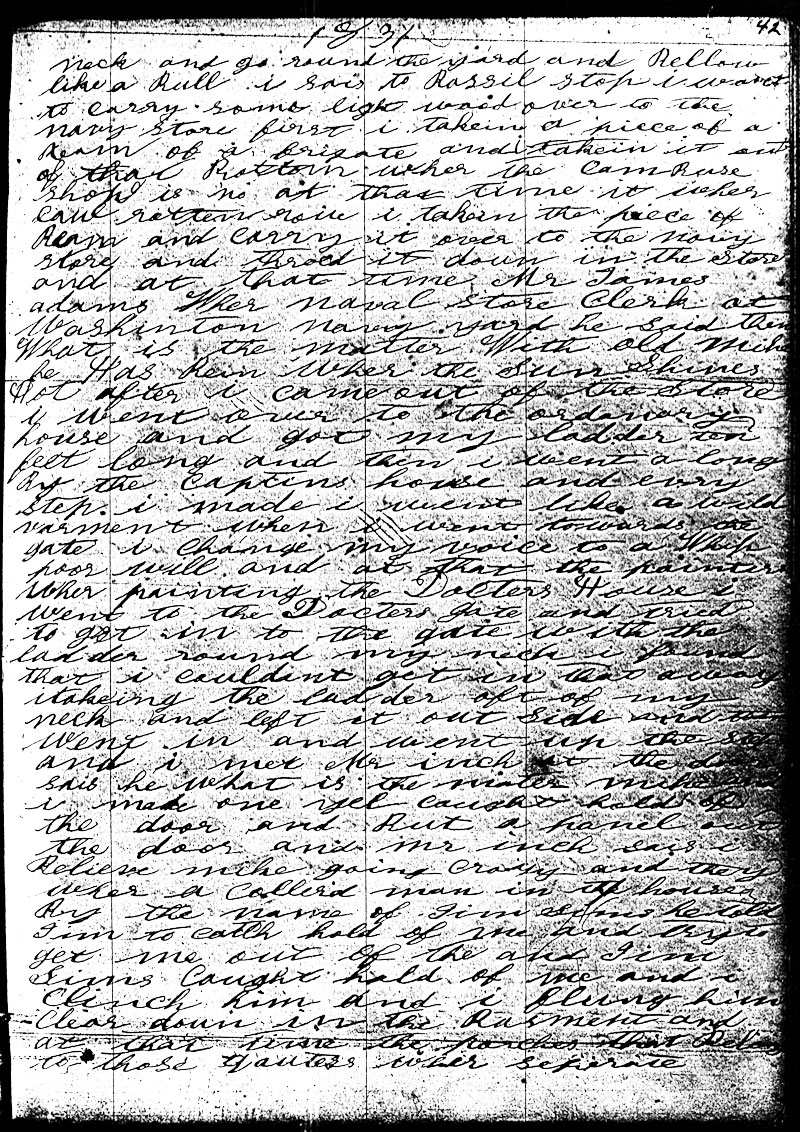 42
1831
neck and go round the yard and Bellow
like a Bull i sais to Bossil stop i want
to carry some ligh woid over to the
navy store first i takein a piece of a
Beam of a frigate and takein it out
of that Bottom wher the Cambose
shop is no at that time it wher
caul rotten row i takein the piece of
Beam and Carry it over to the navy
store and throed it down in the store
and at that time Mr James
adams Wher naval store Clerk at
Washinton navy yard he said then
What is the matter With old Mike
he Has Bein Wher the Sun Shines
Hot after i came out of the Store
i Went over to the ordonary
house and got my ladder ten
feet long and then i went a long
By the Captins house and evry
step i made i went like a wild
varment when i went towards the
gate i change my voice to a Whip
poor will and at that the painters
Wher painting the Docters House i
Went to the Docters gate and tried
to get in to the gate with the
ladder round my neck i found
that i couldint get in that away
i takeing the ladder off of my
neck and left it out side and
Went in and went up the
and i met Mr inch at the door
sais he What is the mater mike and
i made one yel caught holds of
the door and But a panel out
the door and mr inch sais i
Believe mike going Crazy and they
wher a Collerd man in the house
By the name of Jim Sims he told
Jim to catch hold of me and try to
get me out of the and Jim
Sims Caught hold of me and i
Clinch him and i flung him
Clear down in the Basment and
at that time the porches that Belong
to those Qauters wher seperate